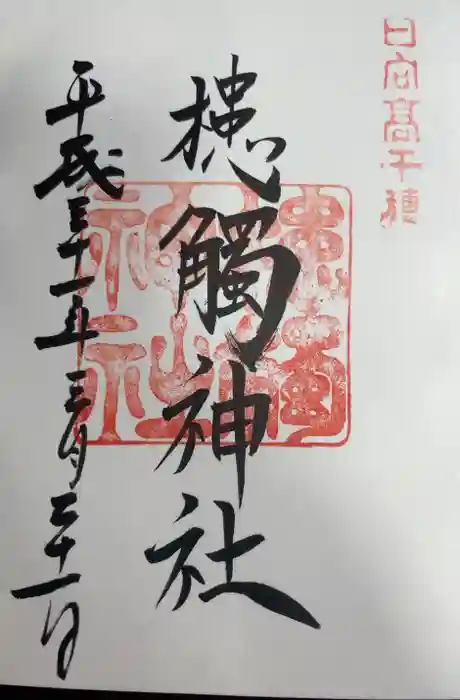 日向高千穂
槵觸神社
平成三十一年三月二十一日